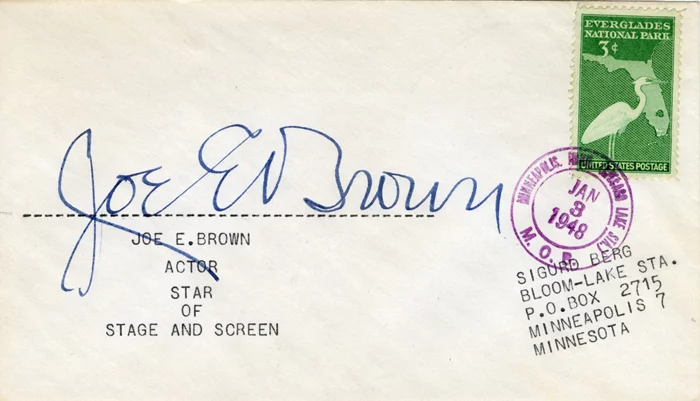 EVERGLADES
NATIONAL PARK
3¢
UNITED STATES POSTAGE
Joe E Brown
JOE E.BROWN
ACTOR
STAR
OF
STAGE AND SCREEN
MINNEAPOLIS, LAKE STA.)
JAN
3
1948
M. O. B.
SIGURD BERG
BLOOM-LAKE STA.
P.O.BOX 2715
MINNEAPOLIS 7
MINNESOTA